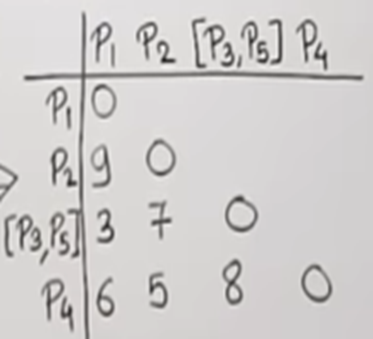 P₁ P₂ [P₃,P₅] P₄
P₁ 0
P₂ 9 0
[P₃,P₅] 3 7 0
P₄ 6 5 8 0